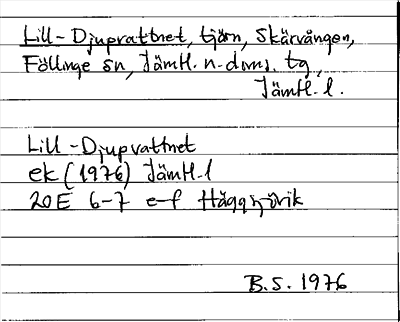 Lill-Djupvattnet, tjärn, Skärvången,
Föllinge sn, Jämtl. n. doms. tg,
Jämtl. l.
Lill-Djupvattnet
ek (1976) Jämtl. l
20E 6-7 e-f Häggsjövik
B.S. 1976